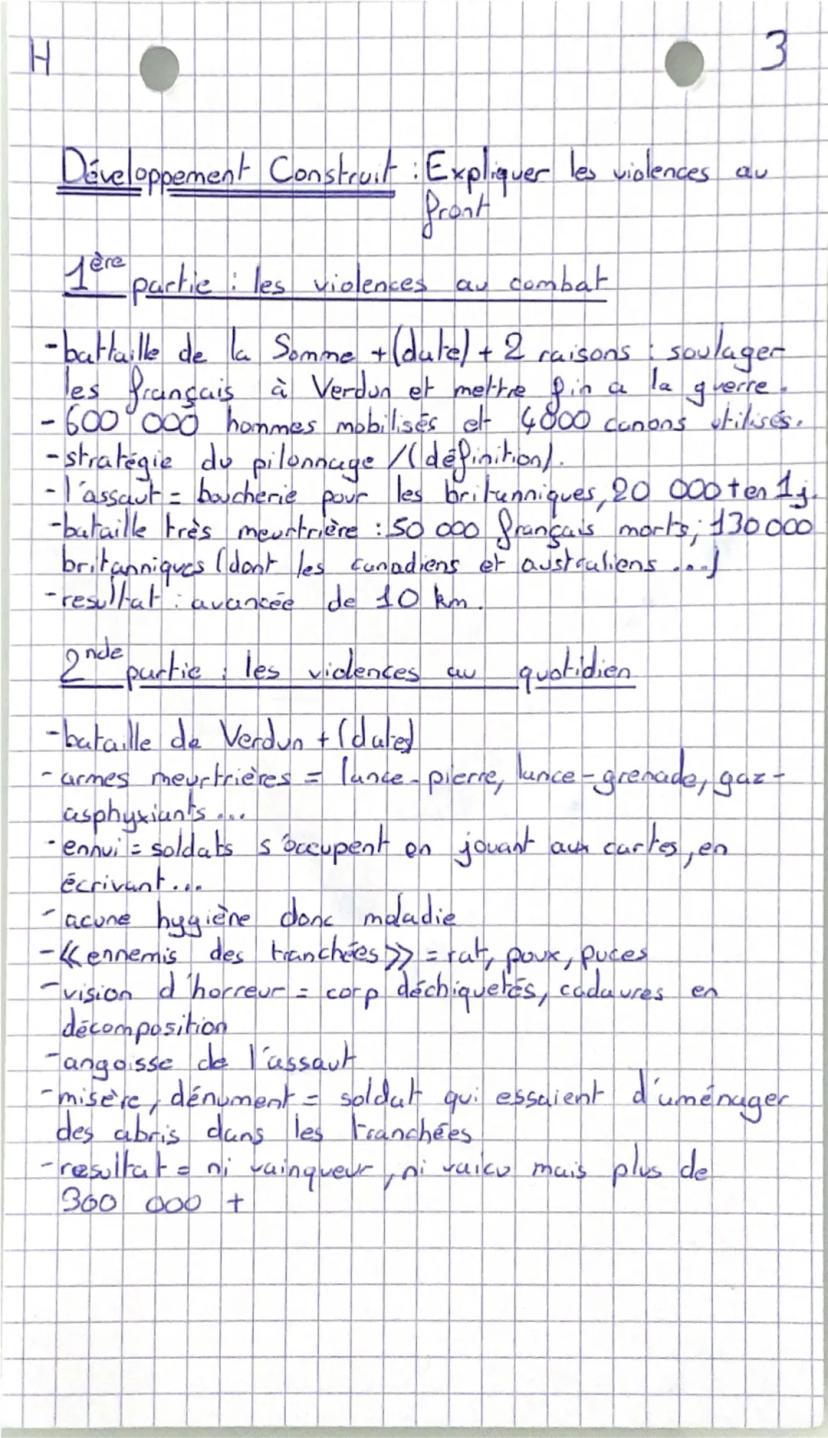 H
3
Développement Construit : Expliquer les violences au
front
1ère partie : les violences au combat
-battaille de la Somme + (date) + 2 raisons : soulager
les français à Verdun et mettre fin a la guerre.
- 600 000 hommes mobilisés et 4000 canons utilisés.
-stratégie du pilonnage /(définition).
-l'assaut = boucherie pour les britanniques, 20 000 + en 1j.
-bataille très meurtrière : 50 000 français morts, 130 000
britanniques (dont les canadiens et australiens ...)
-resultat : avancée de 10 km.
2nde partie : les violences au quotidien
-bataille de Verdun + (date)
-armes meurtrières = lance-pierre, lance-grenade, gaz-
asphyxiants...
-ennui = soldats s'occupent en jouant aux cartes, en
écrivant...
-acune hygiène donc maladie
-<<ennemis des tranchées>> = rat, poux, puces
-vision d'horreur = corp déchiquetés, cadavres en
décomposition
-angoisse de l'assaut
-misère, dénument = soldat qui essaient d'aménager
des abris dans les tranchées
-resultat = ni vainqueur, ni vaicu mais plus de
300 000 +